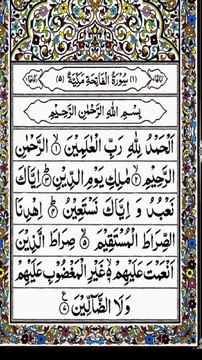 (١) سُوْرَةُ الْفَاتِحَةِ مَكِّيَّةٌ (٥)
بِسْمِ اللّٰهِ الرَّحْمٰنِ الرَّحِيْمِ
اَلْحَمْدُ لِلّٰهِ رَبِّ الْعٰلَمِيْنَ ۙ﴿۱﴾ الرَّحْمٰنِ
الرَّحِيْمِ ۙ﴿۲﴾ مٰلِكِ يَوْمِ الدِّيْنِ ؕ﴿۳﴾ اِيَّاكَ
نَعْبُدُ وَ اِيَّاكَ نَسْتَعِيْنُ ؕ﴿۴﴾ اِهْدِنَا
الصِّرَاطَ الْمُسْتَقِيْمَ ۙ﴿۵﴾ صِرَاطَ الَّذِيْنَ
اَنْعَمْتَ عَلَيْهِمْ ۙ﴿۶﴾ غَيْرِ الْمَغْضُوْبِ عَلَيْهِمْ
وَ لَا الضَّآلِّيْنَ ﴿۷﴾